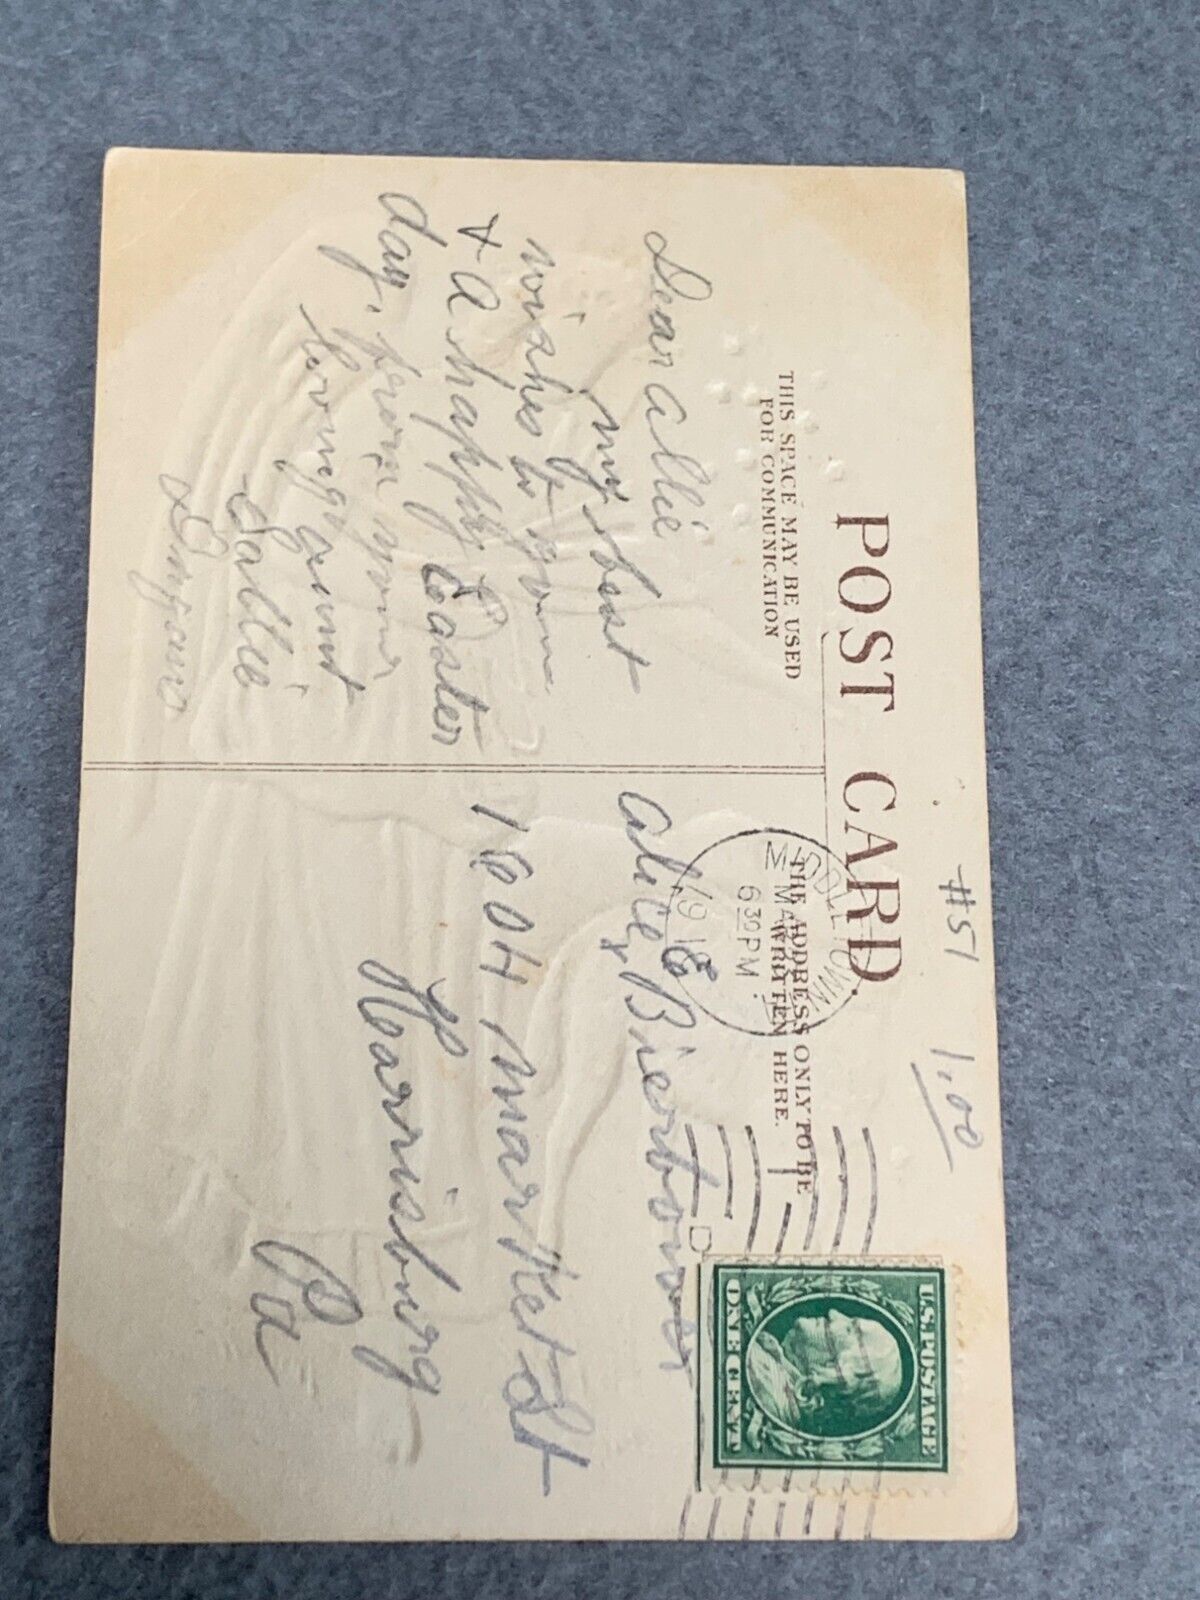 #51 1.00
POST CARD.
THIS SPACE MAY BE USED
FOR COMMUNICATION
THE ADDRESS ONLY TO BE
WRITTEN HERE.
Dear allie
my best
wishes to you
& a happy Easter
day, from your
loving aunt
Sallie
MIDDLETOWN
MAR
630 PM
191
D
U.S. POSTAGE
ONE CENT
alice Bierbower
1604 Market St
Harrisburg
Pa